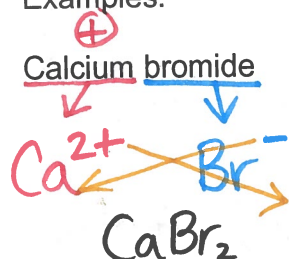 Examples:
+
Calcium bromide
Ca²⁺ Br⁻
CaBr₂